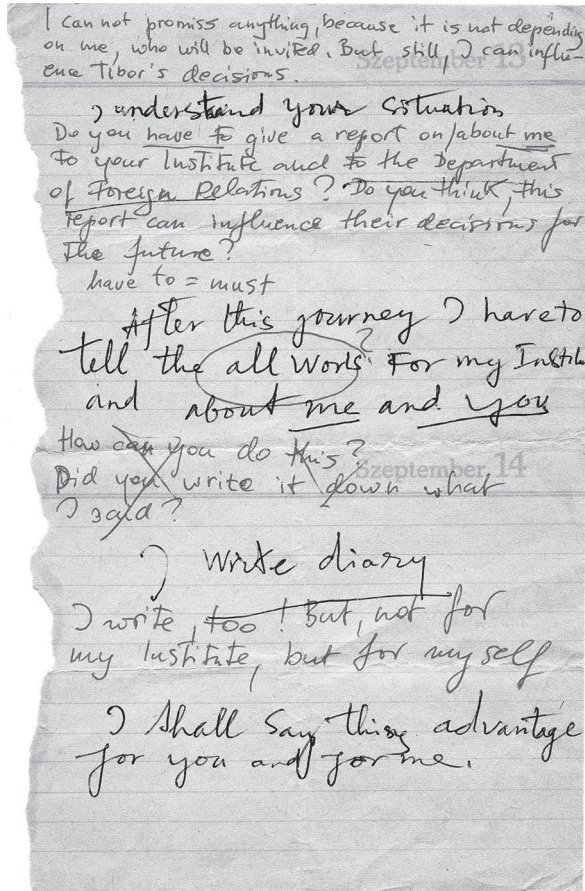 I can not promiss anything, because it is not depending
on me, who will be invited. But still, I can influ-
ence Tibor's decisions.
Szeptember 13
I understand your situation
Do you have to give a report on/about me
to your Institute and to the Department
of Foreign Relations? Do you think, this
report can influence their decisions for
the future?
have to = must
After this journey I have to
tell the all Words? For my Institu
and about me and you
How can you do this?
Szeptember 14
Did you write it down what
I said?
I write diary
I write, too! But, not for
my Institute, but for myself
I shall say thing advantage
for you and for me.